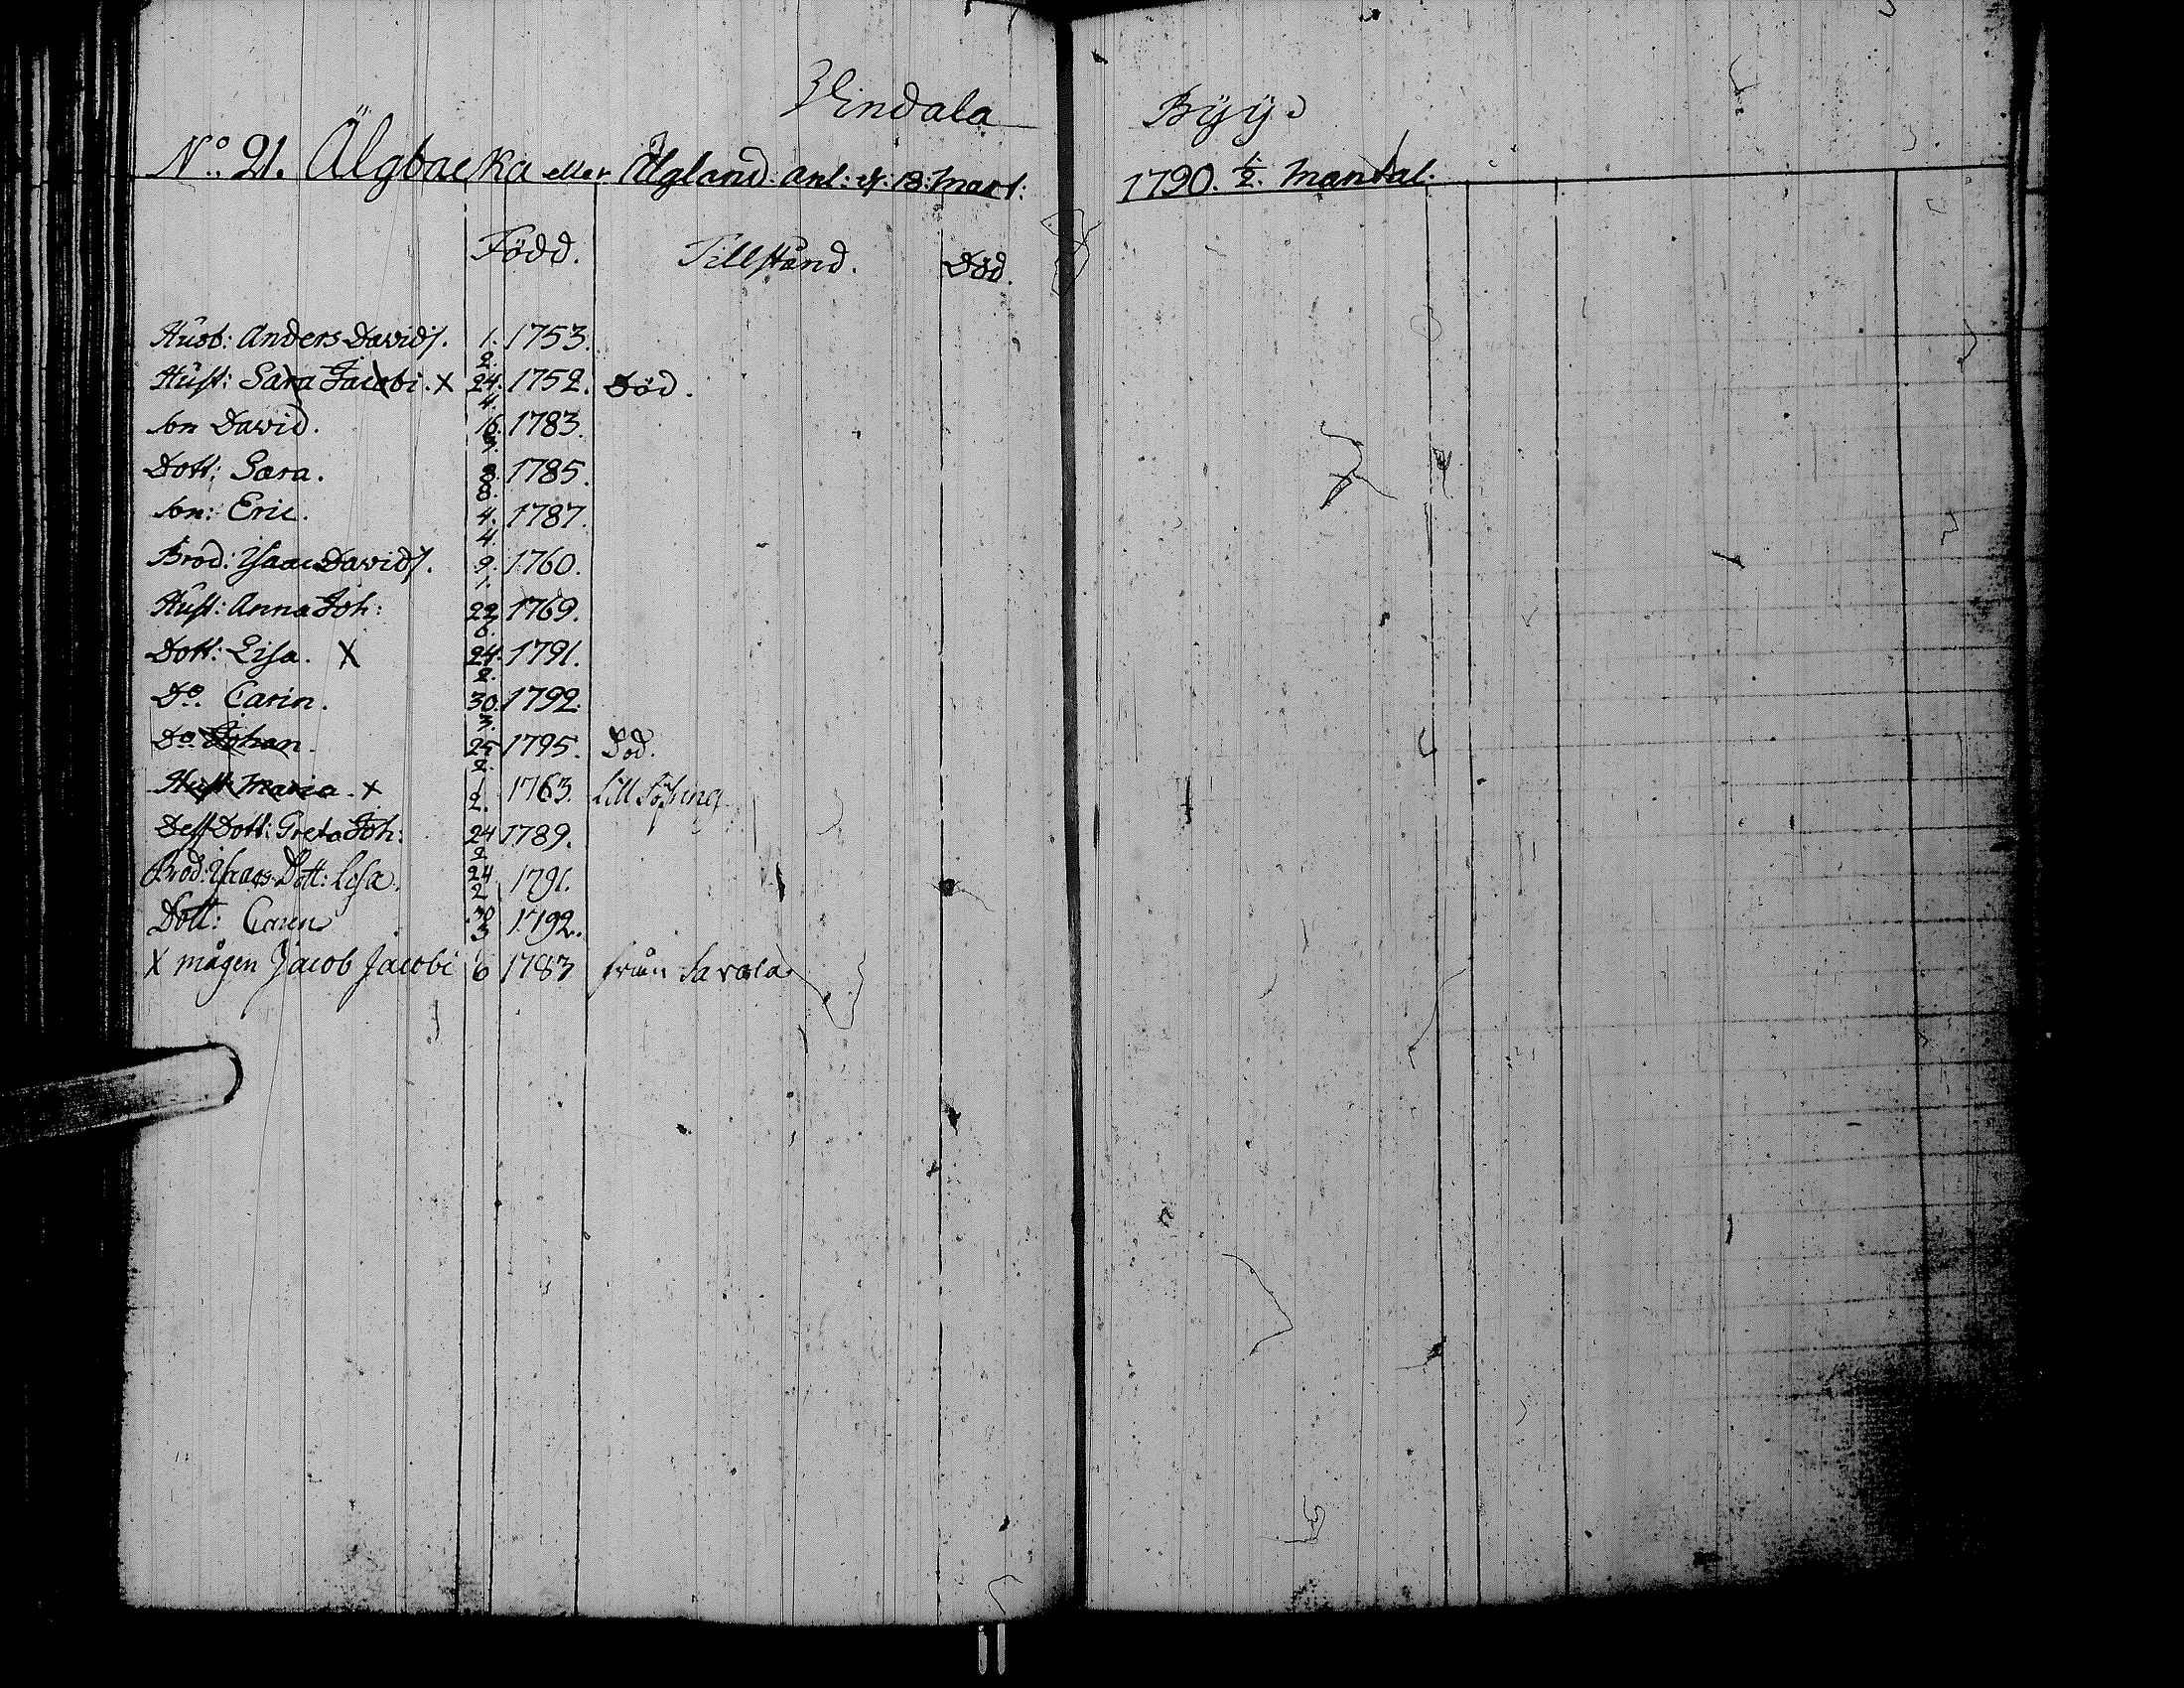 Vindala Byÿ.
No. 21. Älgbacka eller Älgland. anl: d. 18: Mart: 1790. 1/2. Mantal:
Född. Tillstånd. Död.
Husb: Anders Davids. 1. 2. 1753.
Hust: Sara Jacobi. X 24. 4. 1752. Död.
Son David. 16. 3. 1783.
Dott: Sara. 8. 8. 1785.
Son: Eric. 4. 4. 1787.
Brod: Isaac Davids. 9. 1. 1760.
Hust: Anna Joh: 22. 6. 1769.
Dott: Lisa. X 24. 2. 1791.
Do. Carin. 30. 3. 1792.
Do. Johan. 25. 2. 1795. Död.
Hust: Maria. X 1. 2. 1763. till
Dess Dott: Greta Joh: 24. 2. 1789.
Brod: Isaacs Dott: Lisa. 24 2 1791.
Dott: Caren 30 3 1792.
X mågen Jacob Jacobi 6 1783 från Savola